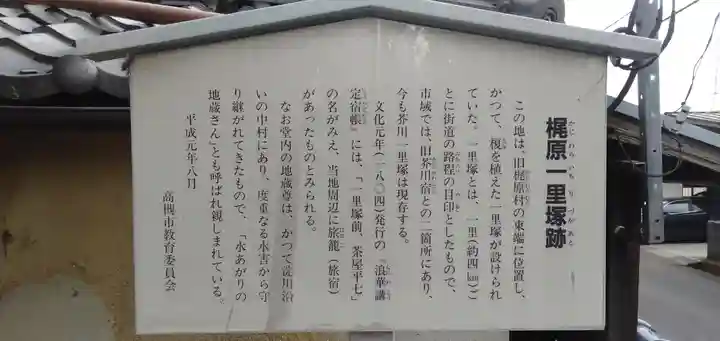 梶原一里塚跡
かじわらいちりづかあと
この地は、旧梶原村の東端に位置し、
かつて、榎を植えた一里塚が設けられ
ていた。一里塚とは、一里(約四㎞)ご
とに街道の路程の目印としたもので、
市域では、旧芥川宿との二箇所にあり、
今も芥川一里塚は現存する。
文化元年(一八〇四)発行の『浪華講
定宿帳』には、「一里塚前、茶屋平七」
の名がみえ、当地周辺に旅籠(旅宿)
があったものとみられる。
なお堂内の地蔵尊は、かつて淀川沿
いの中村にあり、度重なる水害から守
り継がれてきたもので、「水あがりの
地蔵さん」とも呼ばれ親しまれている。
平成元年八月
高槻市教育委員会